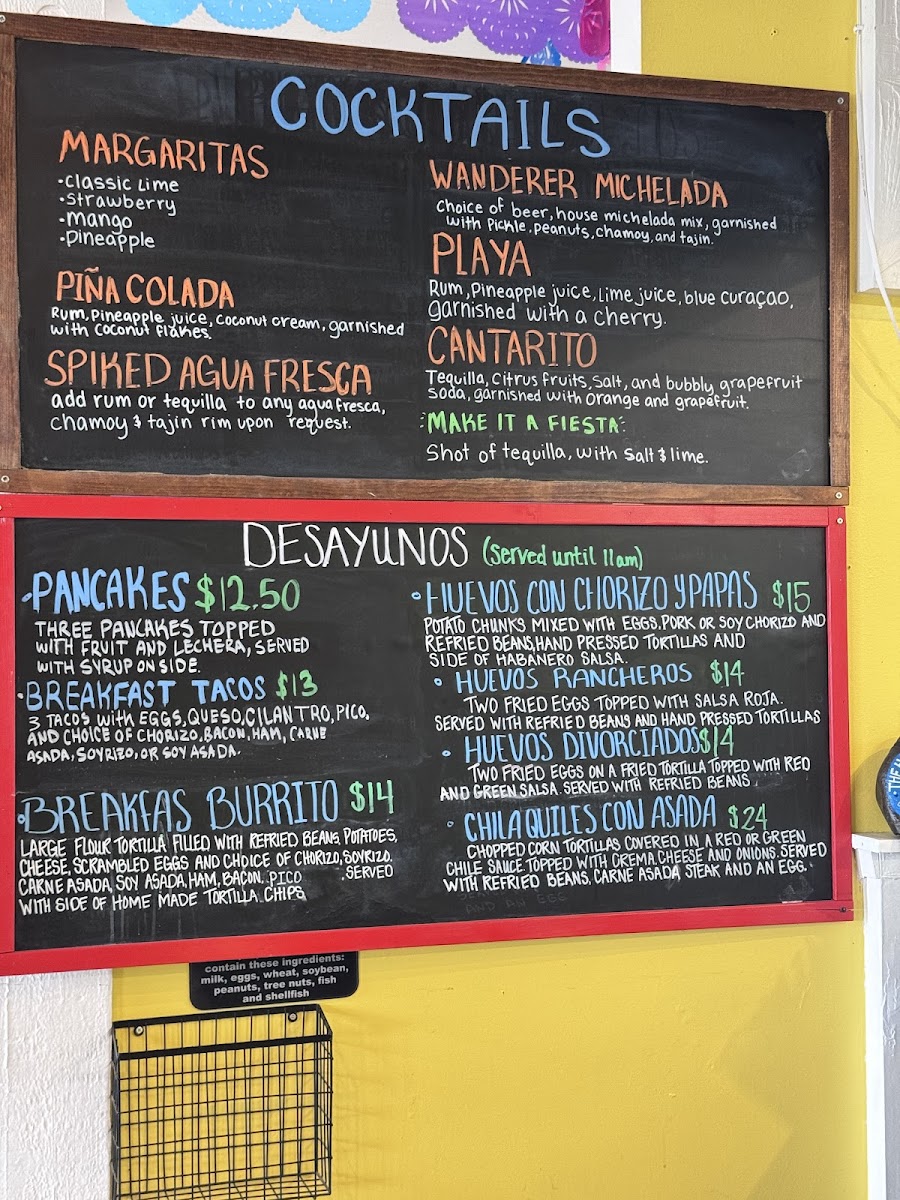 COCKTAILS
MARGARITAS
•Classic Lime
•Strawberry
•Mango
•Pineapple
PIÑA COLADA
Rum, Pineapple juice, coconut cream, garnished
with coconut flakes.
SPIKED AGUA FRESCA
add rum or tequilla to any agua fresca,
chamoy & tajin rim upon request.
WANDERER MICHELADA
choice of beer, house michelada mix, garnished
with Pickle, peanuts, chamoy, and tajin.
PLAYA
Rum, Pineapple juice, Lime juice, blue curaçao,
garnished with a cherry.
CANTARITO
Tequilla, Citrus fruits, Salt, and bubbly grapefruit
Soda, garnished with orange and grapefruit.
MAKE IT A FIESTA
Shot of tequilla, with Salt & lime.
DESAYUNOS (served until 11am)
•PANCAKES $12.50
THREE PANCAKES TOPPED
WITH FRUIT AND LECHERA, SERVED
WITH SYRUP ON SIDE.
•BREAKFAST TACOS $13
3 TACOS with EGGS, QUESO, CILANTRO, PICO,
AND CHOICE OF CHORIZO, BACON, HAM, CARNE
ASADA, SOYRIZO, OR SOY ASADA.
•BREAKFAS BURRITO $14
LARGE FLOUR TORTILLA FILLED WITH REFRIED BEANS, POTATOES,
CHEESE, SCRAMBLED EGGS AND CHOICE OF CHORIZO, SOYRIZO,
CARNE ASADA, SOY ASADA, HAM, BACON. PICO . SERVED
WITH SIDE OF HOME MADE TORTILLA CHIPS
•HUEVOS CON CHORIZO Y PAPAS $15
POTATO CHUNKS MIXED WITH EGGS, PORK OR SOY CHORIZO AND
REFRIED BEANS, HAND PRESSED TORTILLAS AND
SIDE OF HABANERO SALSA.
• HUEVOS RANCHEROS $14
TWO FRIED EGGS TOPPED WITH SALSA ROJA.
SERVED WITH REFRIED BEANS AND HAND PRESSED TORTILLAS
• HUEVOS DIVORCIADOS $14
TWO FRIED EGGS ON A FRIED TORTILLA TOPPED WITH RED
AND GREEN SALSA. SERVED WITH REFRIED BEANS.
• CHILAQUILES CON ASADA $24
CHOPPED CORN TORTILLAS COVERED IN A RED OR GREEN
CHILE SAUCE. TOPPED WITH CREMA, CHEESE AND ONIONS. SERVED
WITH REFRIED BEANS, CARNE ASADA STEAK AND AN EGG.
AND AN EGG
contain these ingredients:
milk, eggs, wheat, soybean,
peanuts, tree nuts, fish
and shellfish